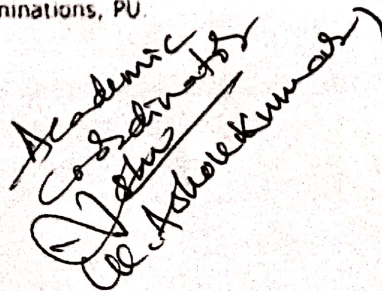 minations, PU.
Academic
Coordinator
Ashok Kumar)